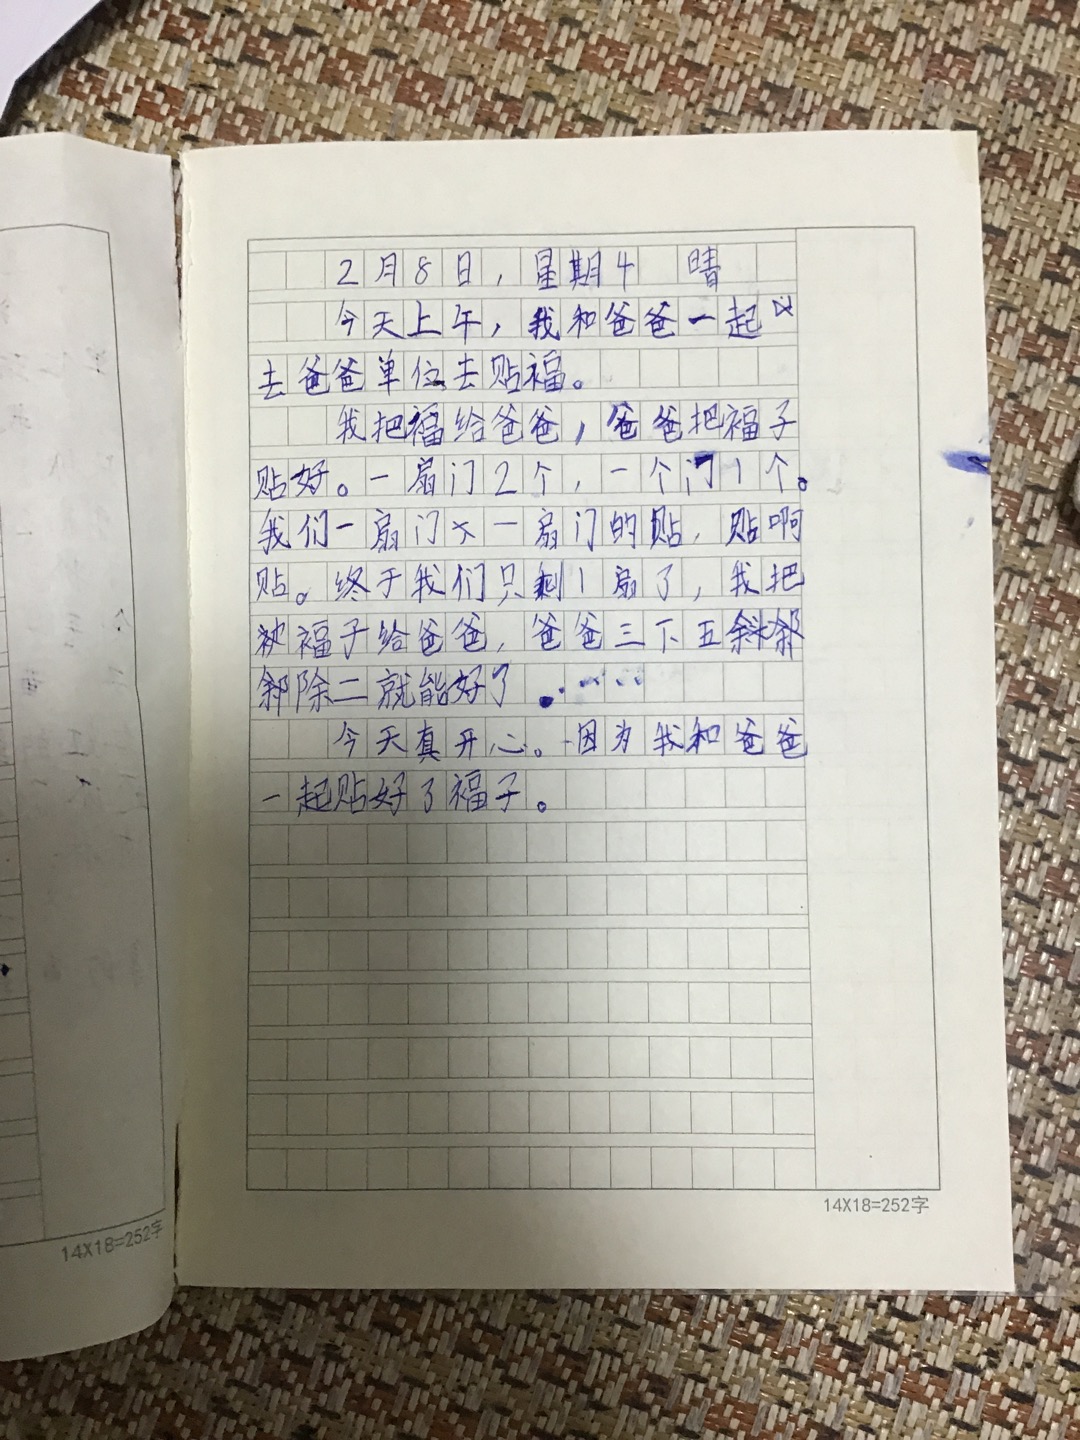 2月8日，星期4 晴
今天上午，我和爸爸一起
去爸爸单位去贴福。
我把福给爸爸，爸爸把福子
贴好。一扇门2个，一个门1个。
我们一扇门又一扇门的贴，贴啊
贴。终于我们只剩1扇了，我把
福子给爸爸，爸爸三下五
除二就能好了
今天真开心。因为我和爸爸
一起贴好了福子。
14X18=252字
14X18=252字